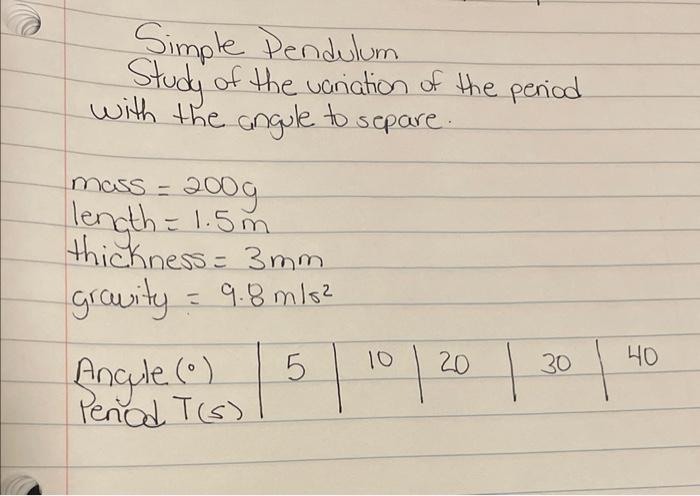 Simple Pendulum
Study of the variation of the period
with the angule to separe.
mass = 200g
length = 1.5m
thickness = 3mm
gravity = 9.8 m/s²
Angule (°) | 5 | 10 | 20 | 30 | 40
Period T(s)